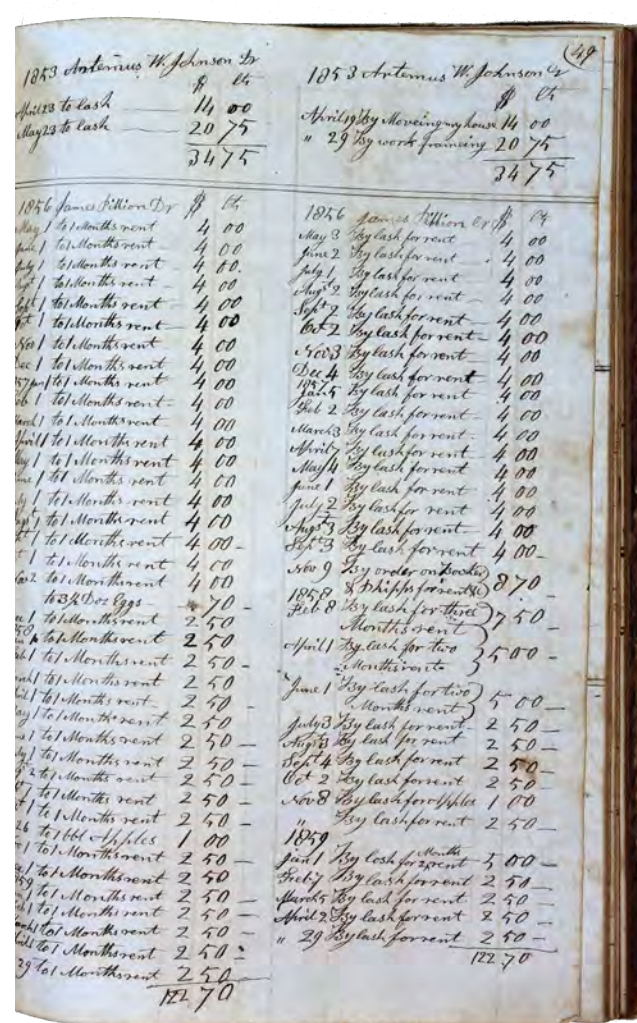 (49
1853 Artemus W. Johnson Dr
$ cts
April 23 to Cash 14 00
May 23 to Cash 20 75
34 75
1853 Artemus W. Johnson Cr
$ cts
April 19 By Moveing my house 14 00
" 29 By work frameing 20 75
34 75
1856 James Fillion Dr $ cts
May 1 to 1 Months rent 4 00
June 1 to 1 Months rent 4 00
July 1 to 1 Months rent 4 00
Augst 1 to 1 Months rent 4 00
Sept 1 to 1 Months rent 4 00
Oct 1 to 1 Months rent 4 00
Nov 1 to 1 Months rent 4 00
Dec 1 to 1 Months rent 4 00
57 Jan 1 to 1 Months rent 4 00
Feb 1 to 1 Months rent 4 00
March 1 to 1 Months rent 4 00
April 1 to 1 Months rent 4 00
May 1 to 1 Months rent 4 00
June 1 to 1 Months rent 4 00
July 1 to 1 Months rent 4 00
Augst 1 to 1 Months rent 4 00
1 to 1 Months rent 4 00
1 to 1 Months rent 4 00
Nov 2 to 1 Months rent 4 00
to 3½ Doz Eggs 70
1 to 1 Months rent 2 50
58
to 1 Months rent 2 50
Feb 1 to 1 Months rent 2 50
1 to 1 Months rent 2 50
1 to 1 Months rent 2 50
May 1 to 1 Months rent 2 50
1 to 1 Months rent 2 50
1 to 1 Months rent 2 50
2 to 1 Months rent 2 50
to 1 Months rent 2 50
1 to 1 Months rent 2 50
26 to 1 bbl Apples 1 00
1 to 1 Months rent 2 50
1 to 1 Months rent 2 50
59
to 1 Months rent 2 50
1 to 1 Months rent 2 50
to 1 Months rent 2 50
to 1 Months rent 2 50
29 to 1 Months rent 2 50
122 70
1856 James Fillion Cr $ cts
May 3 By Cash for rent 4 00
June 2 By Cash for rent 4 00
July 1 By Cash for rent 4 00
Augst 2 By Cash for rent 4 00
Sept 2 By Cash for rent 4 00
Oct 2 By Cash for rent 4 00
Nov 3 By Cash for rent 4 00
Dec 4 By Cash for rent 4 00
1857
Jan 5 By Cash for rent 4 00
Feb 2 By Cash for rent 4 00
March 3 By Cash for rent 4 00
April 7 By Cash for rent 4 00
May 4 By Cash for rent 4 00
June 1 By Cash for rent 4 00
July 2 By Cash for rent 4 00
Augst 3 By Cash for rent 4 00
Sept 3 By Cash for rent 4 00
Nov 9 By order on
& Phipps for rent &c 8 70
1858
Feb 8 By Cash for three
Months rent 7 50
April 1 By Cash for two
Months rent 5 00
June 1 By Cash for two
Months rent 5 00
July 3 By Cash for rent 2 50
Augst 3 By Cash for rent 2 50
Sept 4 By Cash for rent 2 50
Oct 2 By Cash for rent 2 50
Nov 8 By Cash for Apples 1 00
" By Cash for rent 2 50
1859
Jan 1 By Cash for 2 Months rent 5 00
Feb 7 By Cash for rent 2 50
March 5 By Cash for rent 2 50
April 2 By Cash for rent 2 50
" 29 By Cash for rent 2 50
122 70